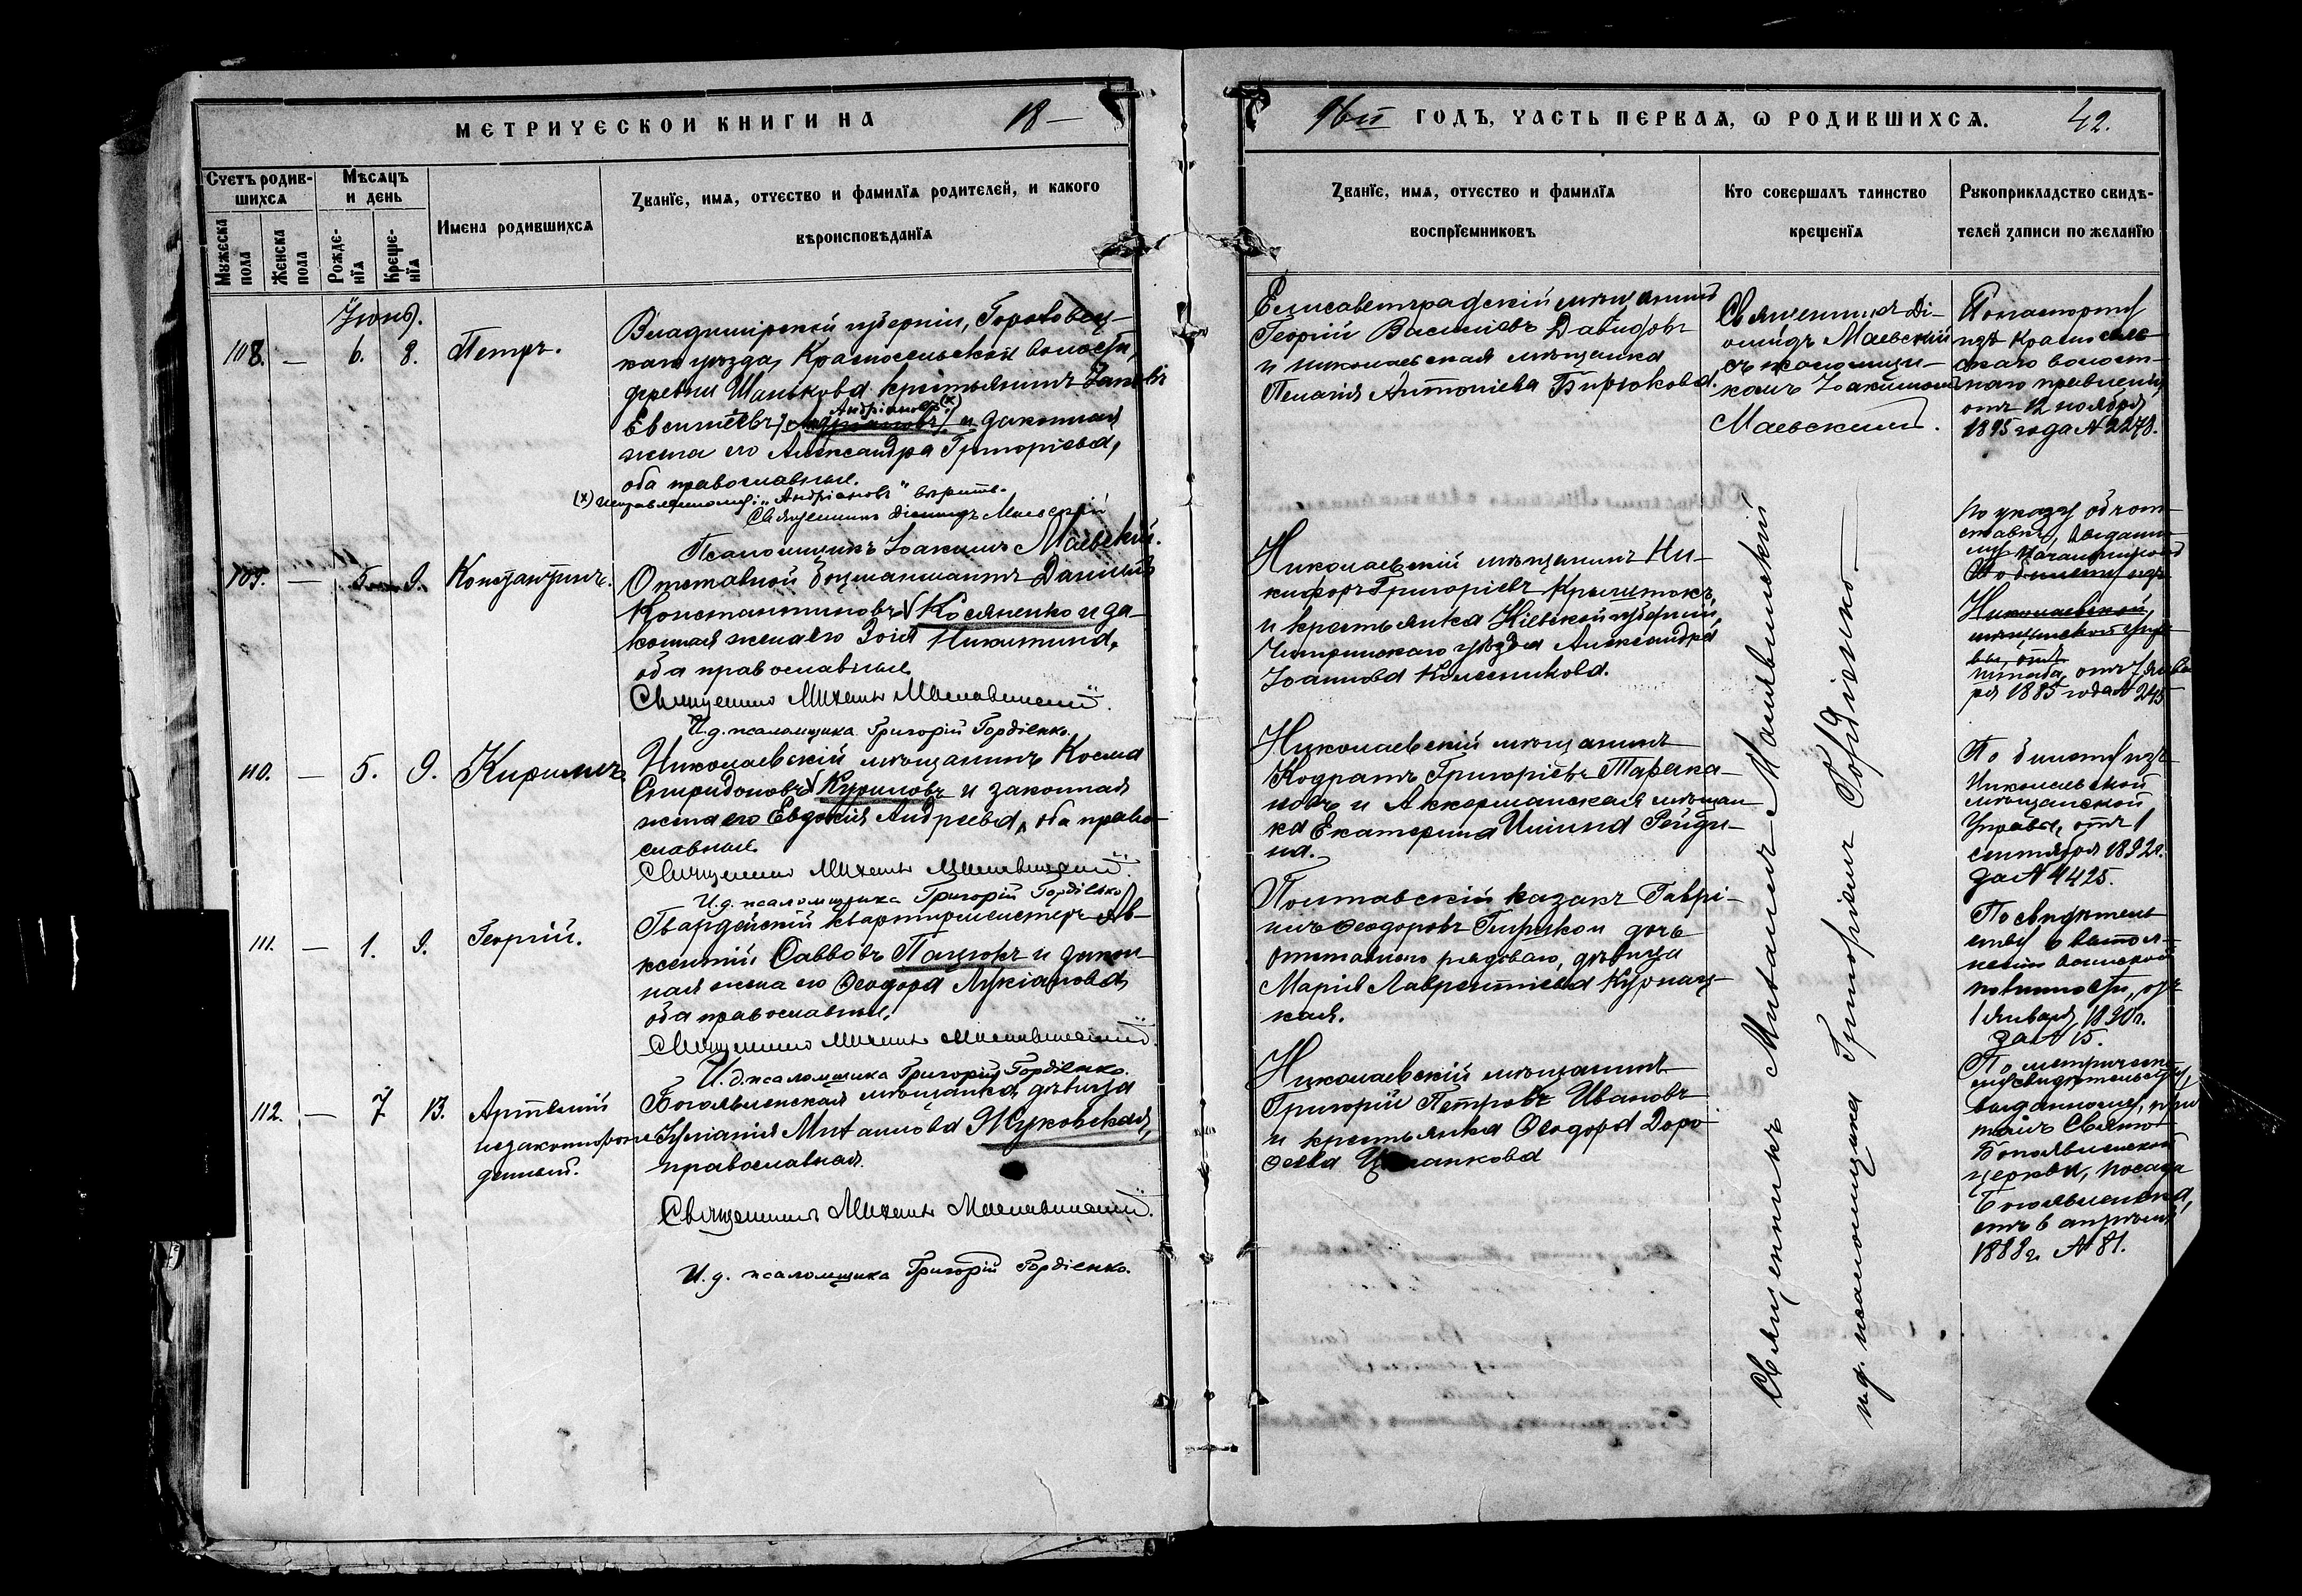 МЕТРИЧЕСКОЙ КНИГИ НА 18—
96й ГОДЪ, ЧАСТЬ ПЕРВАЯ, Ѡ РОДИВШИХСЯ. 42.
Счетъ родив-
шихся
Мужеска
пола
Женска
пола
Мѣсяцъ
и день
Рожде-
нїя
Креще-
нїя
Имена родившихся
Званїе, имя, отчество и фамилїя родителей, и какого
вѣроисповѣданїя
Званїе, имя, отчество и фамилїя
воспрїемниковъ
Кто совершалъ таинство
крещенїя
Рукоприкладство свидѣ-
телей записи по желанїю
Іюнь.
108. — 6. 8. Петръ.
Владимірской губерніи, Гороховец-
каго уѣзда, Красносельской волости,
деревни Шанькова крестьянинъ
Андріановъ (х)
Евсигнѣевъ и законная
жена его Александра Григорьева,
оба православные.
(х) исправленному: „Андріановъ" вѣрить.
Священникъ Діомидъ Маевскій
Псаломщикъ Іоакимъ Маевскій.
Елисаветградскій мѣщанинъ
Георгій Васильевъ Давидовъ
и николаевская мѣщанка
Пелагія Антоніева Бирюкова.
Священникъ Ді-
омидъ Маевскій
съ псаломщи-
комъ Іоакимомъ
Маевскимъ.
По паспорту
изъ Красносель-
скаго волост-
наго правленія,
отъ 12 ноября
1895 года № 2278.
109. — 5. 9. Константинъ.
Отставной боцманматъ Даніилъ
Константиновъ Косяненко и за-
конная жена его Зоія Никитина,
оба православные.
Священникъ Михаилъ
И.д. псаломщика Григорій Гордіенко.
Николаевскій мѣщанинъ Ни-
кифоръ Григорьевъ
и крестьянка Кіевской губерніи,
Чигиринскаго уѣзда Александра
Іоаннова Колесникова.
По указу объ от-
ставкѣ, выданно-
му
Николаевской
мѣщанской упра-
вы, отъ
штаба, отъ 7 янва-
ря 1885 года № 245
110. — 5. 9. Кириллъ.
Николаевскій мѣщанинъ Косма
Спиридоновъ Куриловъ и законная
жена его Евдокія Андреева, оба право-
славные.
Священникъ Михаилъ
И.д. псаломщика Григорій Гордіенко
Николаевскій мѣщанинъ
Кодратъ Григорьевъ Тарака-
новъ и Аккерманская мѣщан-
ка Екатерина Ильина Рейди-
на.
По билету изъ
Николаевской
мѣщанской
Управы, отъ 1
сентября 1892 г.
за № 4425.
111. — 1. 9. Георгій.
Гвардейскій квартирмейстеръ Ав-
ксентій Саввовъ Пацюкъ и закон-
ная жена его Ѳеодора Лукіанова,
оба православные.
Священникъ Михаилъ
И.д. псаломщика Григорій Гордіенко.
Полтавскій казакъ Гаврі-
илъ Ѳеодоровъ и дочь
отставного рядового, дѣвица
Марія Лаврентіева Курнац-
кая.
По свидѣтель-
ству о выпол-
неніи воинской
повинности, отъ
1 января 1890 г.
за № 15.
112. — 7 13. Артемій
незаконнорож-
денный.
Богоявленская мѣщанка, дѣвица
Іуліанія Михаилова Жуковская,
православная.
Священникъ Михаилъ
И.д. псаломщика Григорій Гордіенко.
Николаевскій мѣщанинъ
Григорій Петровъ Ивановъ
и крестьянка Ѳеодора Доро-
ѳеева
По метрическо-
му свидѣтельству,
выданному, прич-
томъ Свято-
Богоявленской
церкви, посада
Богоявленска,
отъ 6 апрѣля
1888 г. № 81.
Священникъ Михаилъ
и.д. псаломщика Григорій Гордіенко